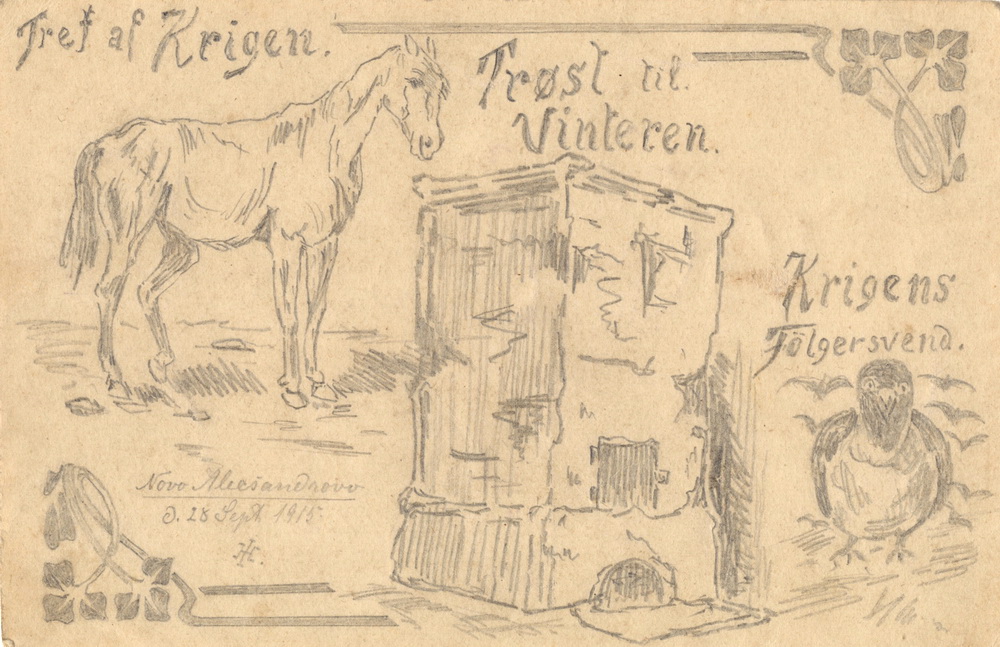 Tref af Krigen.
Trøst til
Vinteren.
Krigens
Følgersvend.
Novo Alecsandrovo
d. 28 Sept. 1915